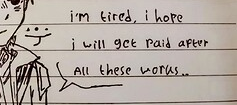 i'm tired, i hope
i will get paid after
All these works..